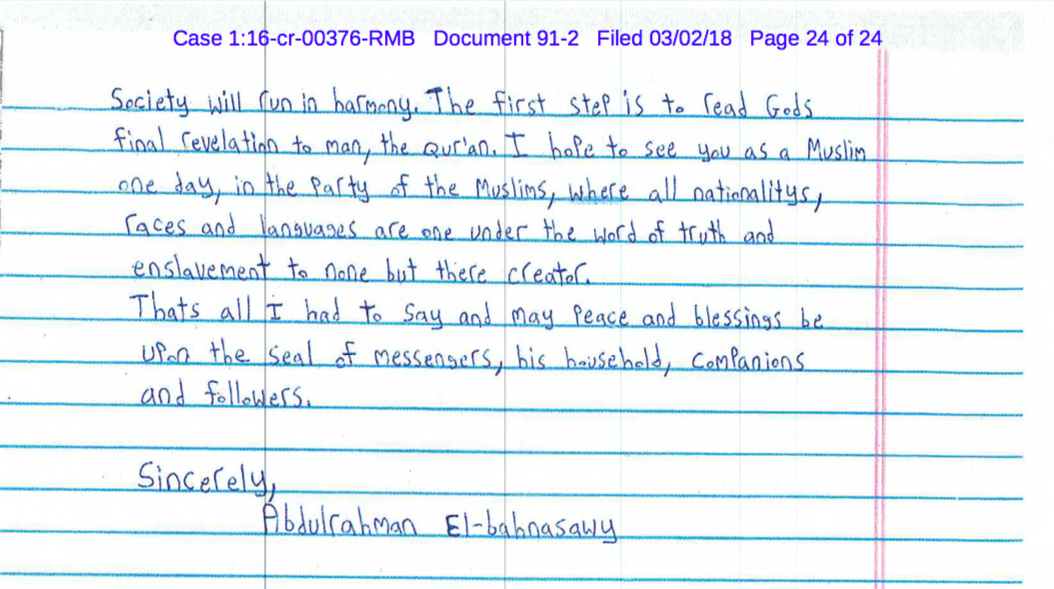 Case 1:16-cr-00376-RMB Document 91-2 Filed 03/02/18 Page 24 of 24
Society will run in harmony. The first step is to read Gods
final revelation to man, the Qur'an. I hope to see you as a Muslim
one day, in the party of the Muslims, where all nationalitys,
races and languages are one under the word of truth and
enslavement to none but there creator.
Thats all I had to say and may peace and blessings be
upon the seal of messengers, his household, companions
and followers.
Sincerely,
Abdulrahman El-bahnasawy